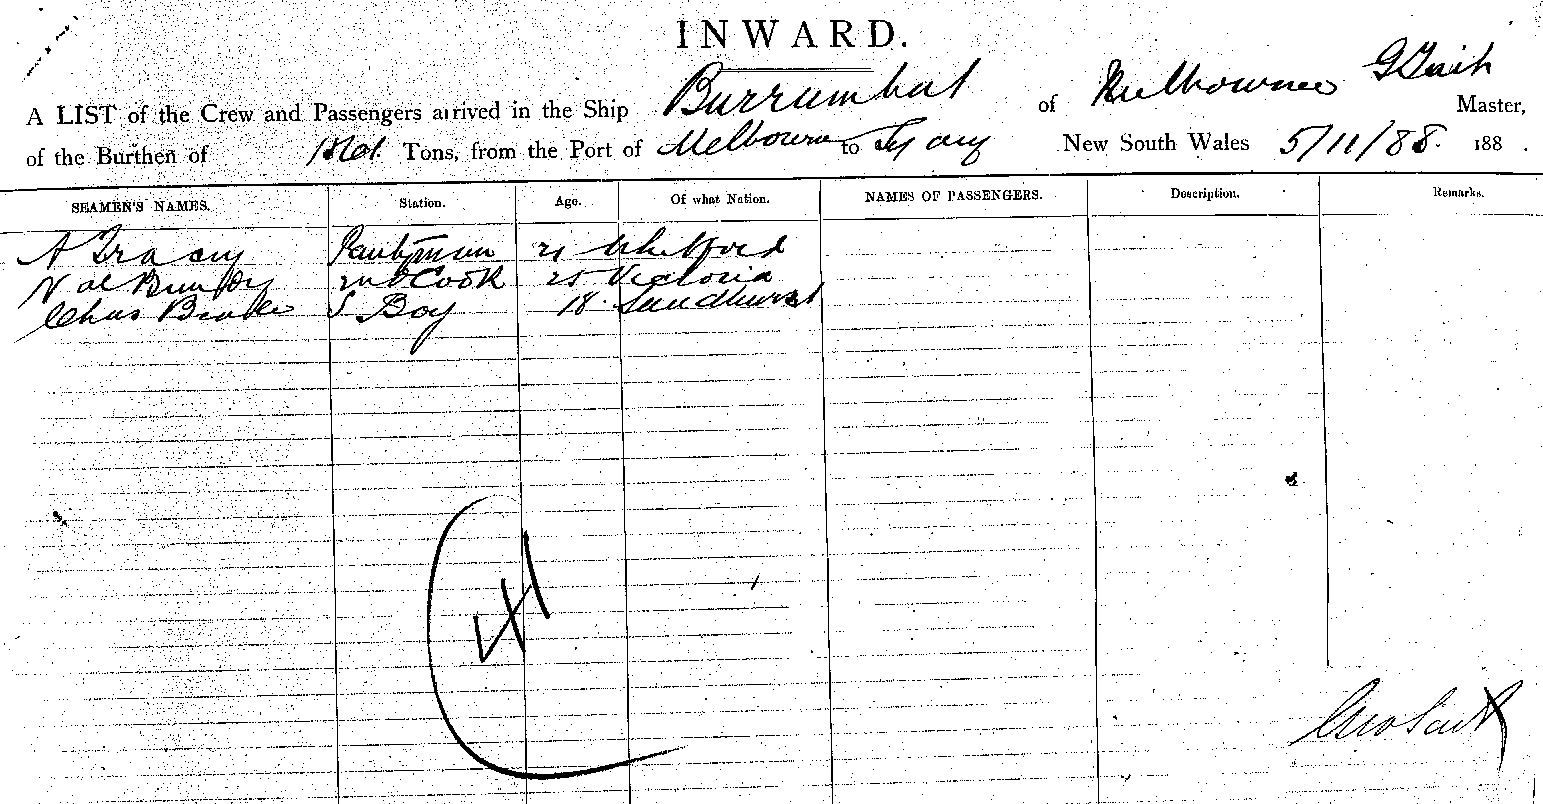 INWARD.
A LIST of the Crew and Passengers arrived in the Ship Burrumbeet of Melbourne G Master,
of the Burthen of Tons, from the Port of Melbourne to Sydney New South Wales 5/11/88. 188 .
SEAMEN'S NAMES. Station. Age. Of what Nation. NAMES OF PASSENGERS. Description. Remarks.
A Tracy Pantryman 21
2nd Cook 25 Victoria
Chas S Boy 18 Sandhurst
41
Geo